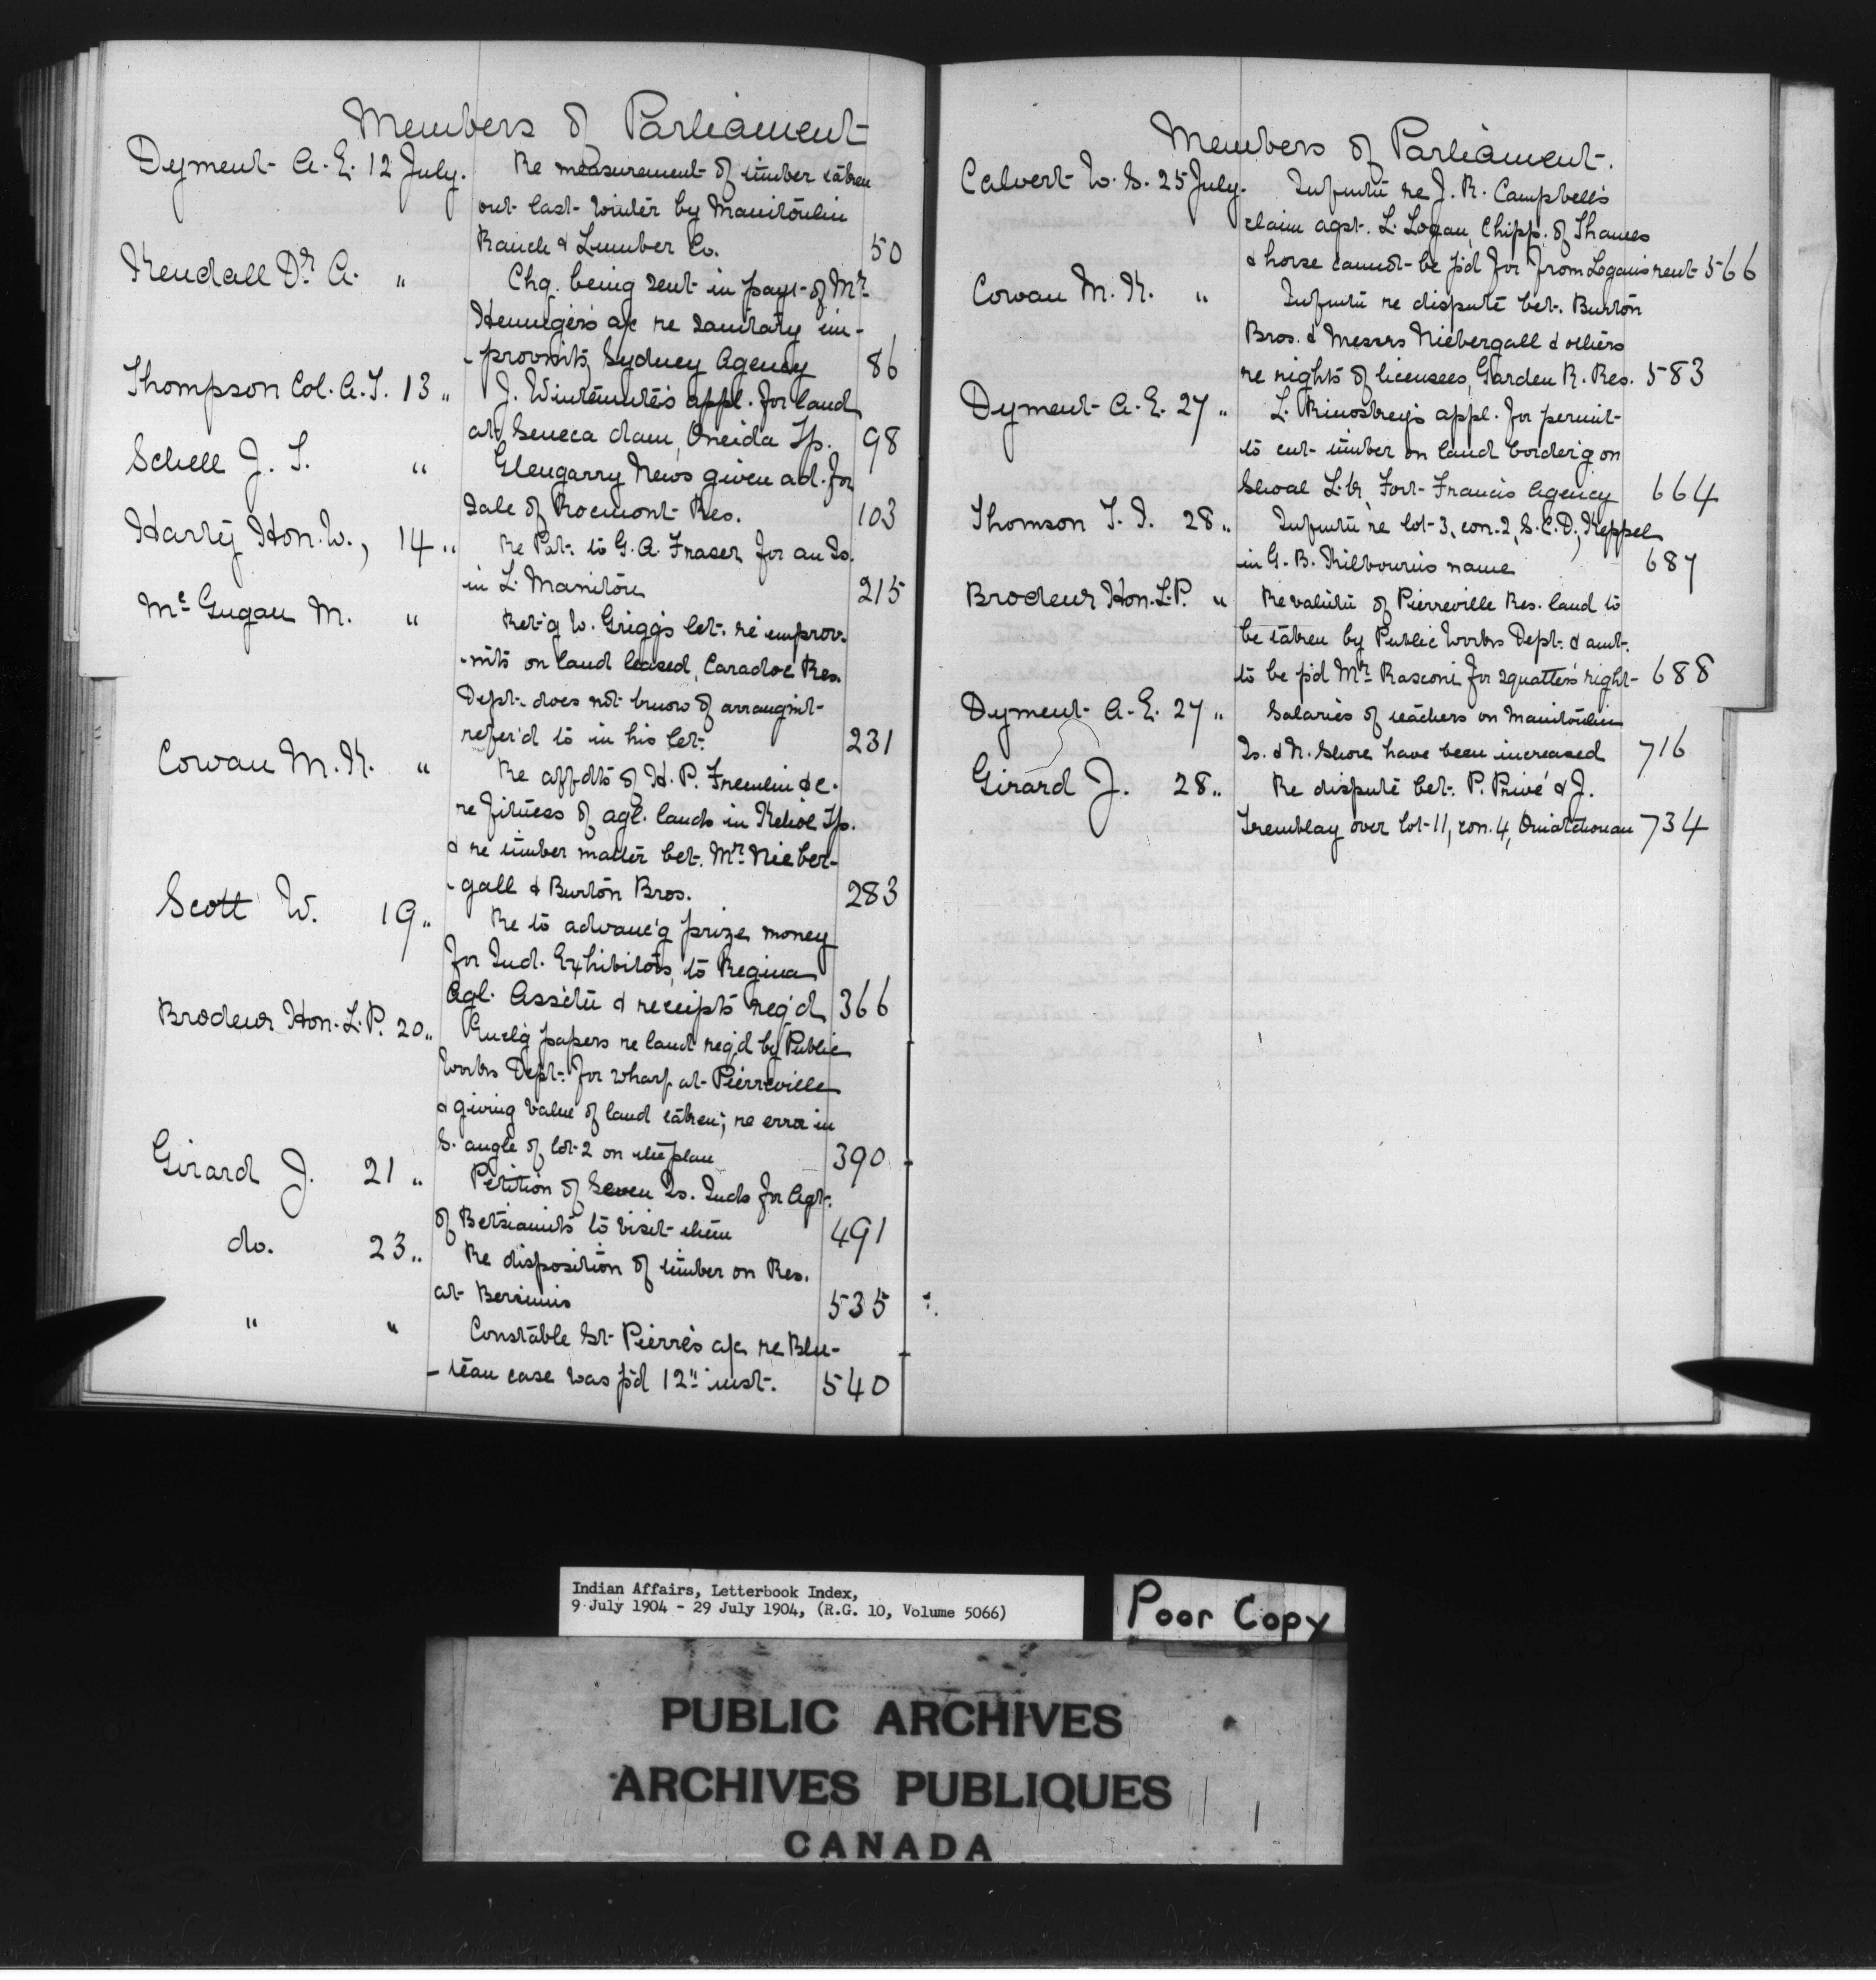 Members of Parliament
Dyment A. E. 12 July. Re measurement of timber taken
out last winter by Manitoulin
Ranch & Lumber Co. 50
Kendall Dr. A. " Chq. being sent in payt. of Mr.
Hennigers a/c re sanitary im-
-provmts, Sydney Agency 86
Thompson Col. A. T. 13 " J. Wintemute's appl. for land
at Seneca dam, Oneida Tp. 98
Schell J. T. " Glengarry News given ad. for
Sale of Rocmont Res. 103
Harty Hon. W., 14 " Re Pat. to G. A. Fraser for an Is.
in L. Manitou 215
McGugan M. " Ret'g W. Grigg's let. re improv-
-mts on land leased, Caradoc Res.
Dept. does not know of arrangmt
refer'd to in his let. 231
Cowan M. K. " Re affdts of H. P. Fremlin &c.
re fitness of agl. lands in Kehoe Tp.
& re timber matter bet. Mr. Nieber-
-gall & Burton Bros. 283
Scott W. 19 " Re to advanc'g prize money
for Ind. Exhibitors, to Regina
Agl. Ass'tn & receipts req'd 366
Brodeur Hon. L. P. 20 " Encl'g papers re land req'd by Public
Works Dept. for wharf at Pierreville
& giving value of land taken; re error in
S. angle of lot 2 on the plan 390
Girard J. 21 " Petition of Seven Is. Inds for Agt.
of Betsiamits to visit them 491
do. 23 " Re disposition of timber on Res.
at Bersimis 535
" " Constable St. Pierre's a/c re Blu-
-teau case was p'd 12" inst. 540
Members of Parliament.
Calvert W. S. 25 July. Infmtn re J. R. Campbell's
claim agst. L. Logan, Chipp. of Thames
& horse cannot be p'd for from Logan's rent 566
Cowan M. K. " Infmtn re dispute bet. Burton
Bros. & Messrs Niebergall & others
re rights of licensees, Garden R. Res. 583
Dyment A. E. 27 " L. appl. for permit
to cut timber on land border'g on
Shoal L. Fort Francis Agency 664
Thomson T. I. 28 " Infmtn re lot 3, con. 2, S. C. D., Keppel
in G. B. Kilbourn's name 687
Brodeur Hon. L. P. " Re valutn of Pierreville Res. land to
be taken by Public Works Dept. & amt.
to be p'd Mr. Rasconi for squatter's right 688
Dyment A. E. 27 " Salaries of teachers on Manitoulin
Is. & N. Shore have been increased 716
Girard J. 28 " Re dispute bet. P. Privé & J.
Tremblay over lot 11, con. 4, Ouiatchouan 734
Indian Affairs, Letterbook Index,
9 July 1904 - 29 July 1904, (R.G. 10, Volume 5066)
Poor Copy
PUBLIC ARCHIVES
ARCHIVES PUBLIQUES
CANADA